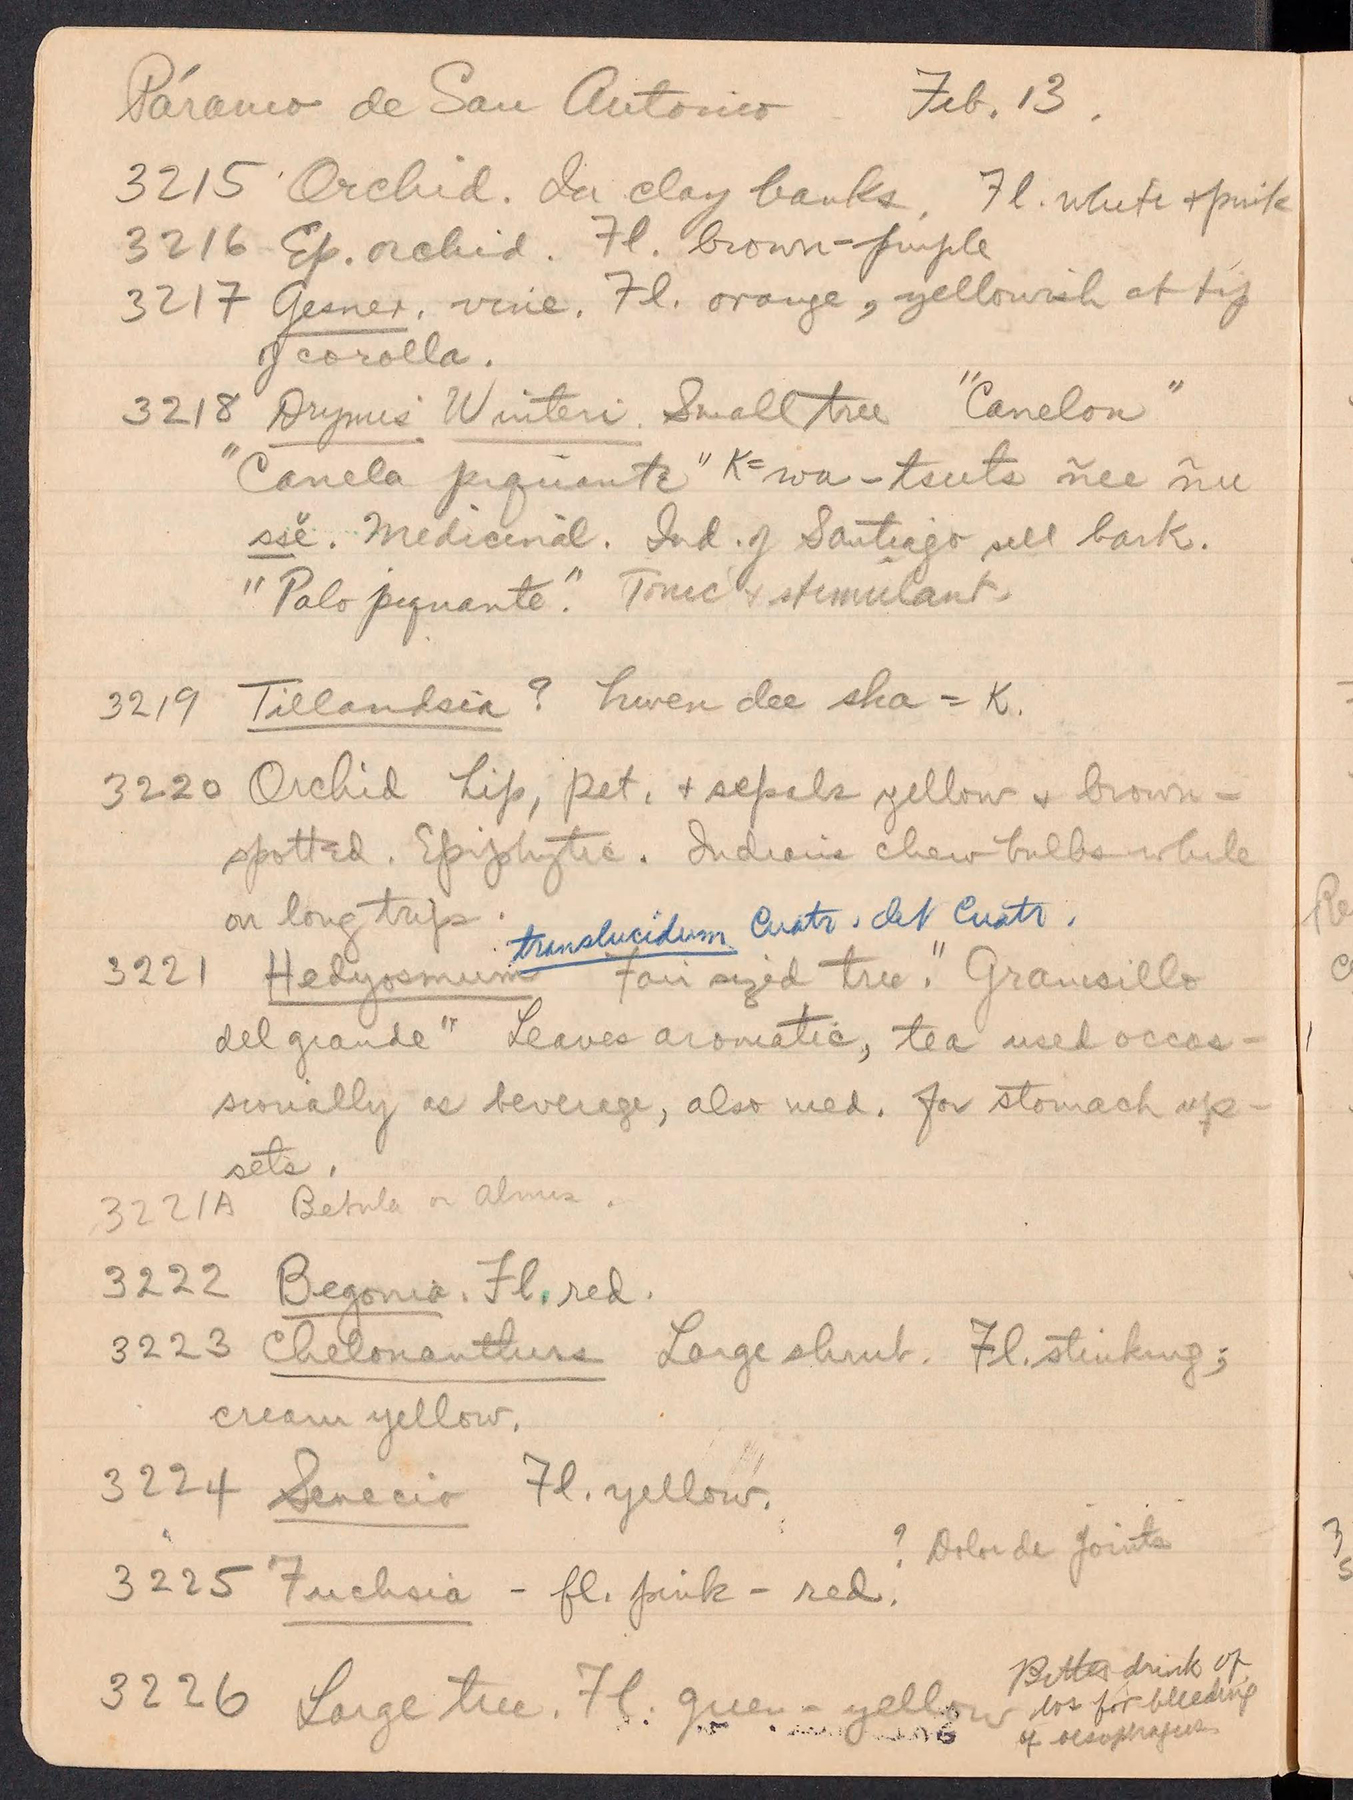 Páramo de San Antonio Feb. 13.
3215 Orchid. In clay banks. Fl. white + pink
3216 Ep. orchid. Fl. brown-purple
3217 Gesner. vine. Fl. orange, yellowish at tip
of corolla.
3218 Drymis Winteri. Small tree "Canelon"
"Canela piquante" K= wa-tsuts ñee ñu
ssë. Medicinal. Ind. of Santiago sell bark.
"Palo piquante". Tonic & stimulant.
3219 Tillandsia? hwen dee sha = K.
3220 Orchid Lip, pet. + sepals yellow & brown-
spotted. Epiphytic. Indians chew bulbs while
on long trips.
translucidum Cuatr. det Cuatr.
3221 Hedyosmum Fair sized tree. "Granisillo
del grande" Leaves aromatic, tea used occas-
sionally as beverage, also med. for stomach up-
sets.
3221A Betula or Alnus.
3222 Begonia. Fl. red.
3223 Chelonanthus Large shrub. Fl. stinking;
cream yellow.
3224 Senecio Fl. yellow.
? Dolor de joints
3225 Fuchsia - fl. pink - red.
3226 Large tree. Fl. green-yellow
Bitter drink of
for bleeding
of oesophagus